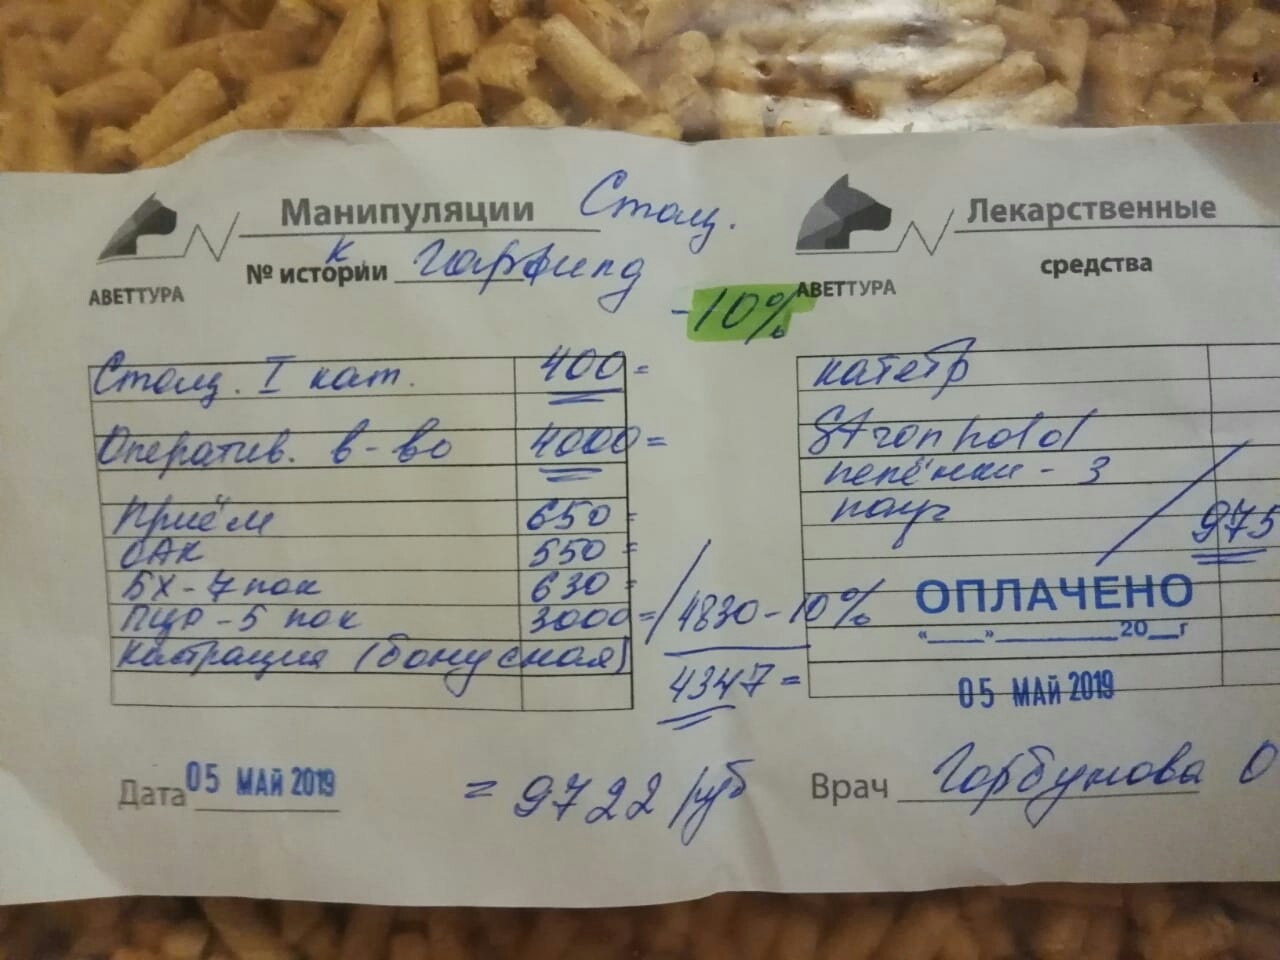 Манипуляции Стац.
№ истории к. Гарфилд
АВЕТТУРА
-10%
Стац. I кат. 400=
Оператив. в-во 4000=
Приём 650=
ОАК 550=
БХ-7 пок 630=
ПЦР-5 пок 3000= / 4830-10%
Кастрация (бонусная)
4347=
Дата 05 МАЙ 2019
= 9722 руб
Лекарственные
средства
АВЕТТУРА
катетр
Stronhold
пелёнки - 3
975
ОПЛАЧЕНО
"___"__________20__г
05 МАЙ 2019
Врач Горбунова О